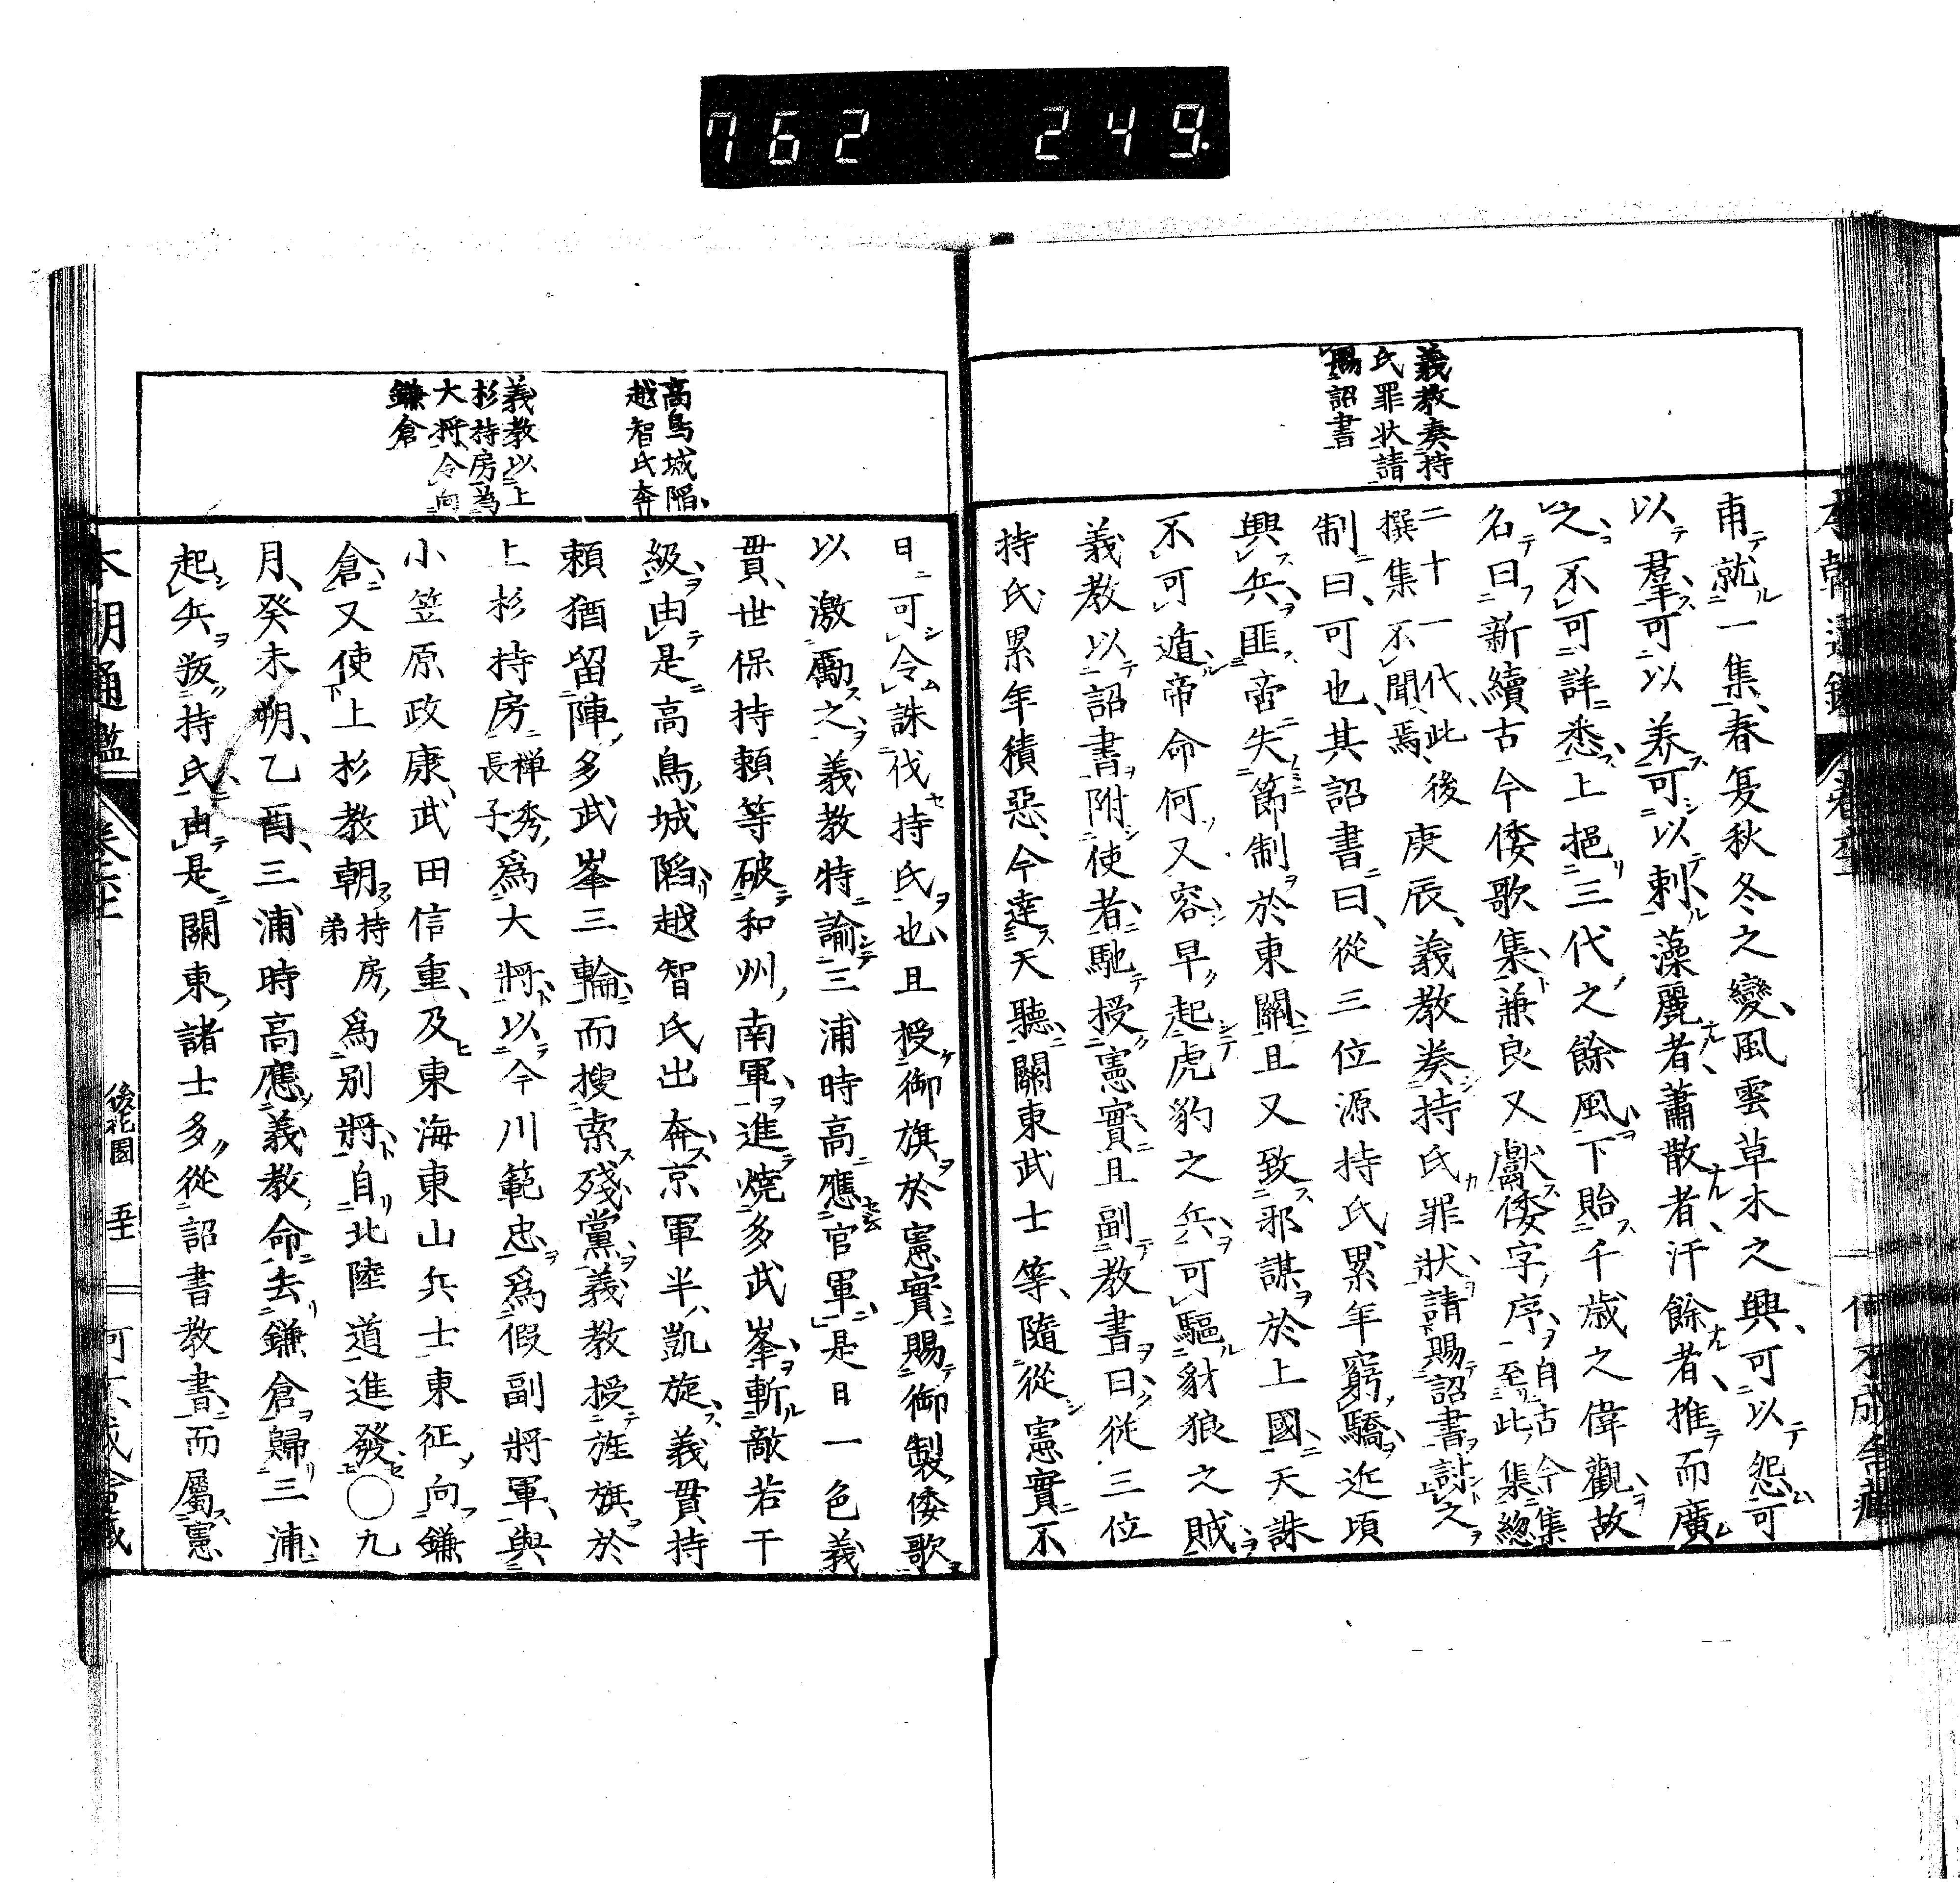 762 249
義教奏持
氏罪状請
賜詔書
甫就一集春夏秋冬之變風雲草木之興可以怨可
以羣可以养可以刺藻麗者蕭散者汗餘者推而廣
之不可詳悉上挹三代之餘風下貽千歳之偉觀故
名曰新續古今倭歌集兼良又獻倭字序自古今集
至此集總
二十一代此
撰集不聞焉後庚辰義教奏持氏罪状請賜詔書討之
制曰可也其詔書曰從三位源持氏累年窮驕近頃
興兵匪啻失節制於東關且又致邪謀於上國天誅
不可遁帝命何又容早起虎豹之兵可驅豺狼之賊
義教以詔書附使者馳授憲實且副教書曰從三位
持氏累年積惡今達天聽關東武士等隨從憲實不
高鳥城陷
越智氏奔
義教以上
杉持房為
大將令向
鎌倉
日可令誅伐持氏也且授御旗於憲實賜御製倭歌
以激勵之義教特諭三浦時高應官軍是日一色義
貫世保持頼等破和州南軍進燒多武峯斬敵若干
級由是高鳥城陷越智氏出奔京軍半凱旋義貫持
頼猶留陣多武峯三輪而搜索殘黨義教授旌旗於
上杉持房禅秀
長子爲大將以今川範忠爲假副將軍與
小笠原政康武田信重及東海東山兵士東征向鎌
倉又使上杉教朝持房
弟爲別將自北陸道進發〇九
月癸未朔乙酉三浦時高應義教命去鎌倉歸三浦
起兵叛持氏由是關東諸士多從詔書教書而屬憲
本朝通鑑
後花園